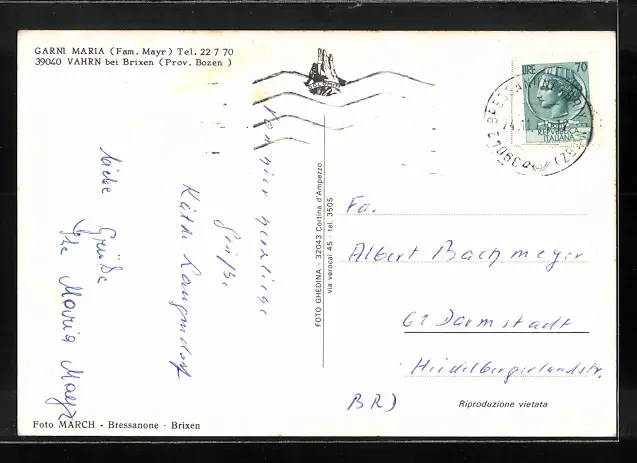 GARNI MARIA (Fam. Mayr) Tel. 22 7 70
39040 VAHRN bei Brixen (Prov. Bozen )
LIRE 70
REPUBBLICA
ITALIANA
39042 BRESSANONE
(BZ)
Von hier herzliche
Grüße
Käthe Langendorf
Liebe Grüße
Ihr Maria Mayr
FOTO GHEDINA - 32043 Cortina d'Ampezzo
via verocai 45 - tel. 3505
Fa.
Albert Bachmeyer
61 Darmstadt
Heidelbergerlandstr.
BRD
Riproduzione vietata
Foto MARCH - Bressanone - Brixen